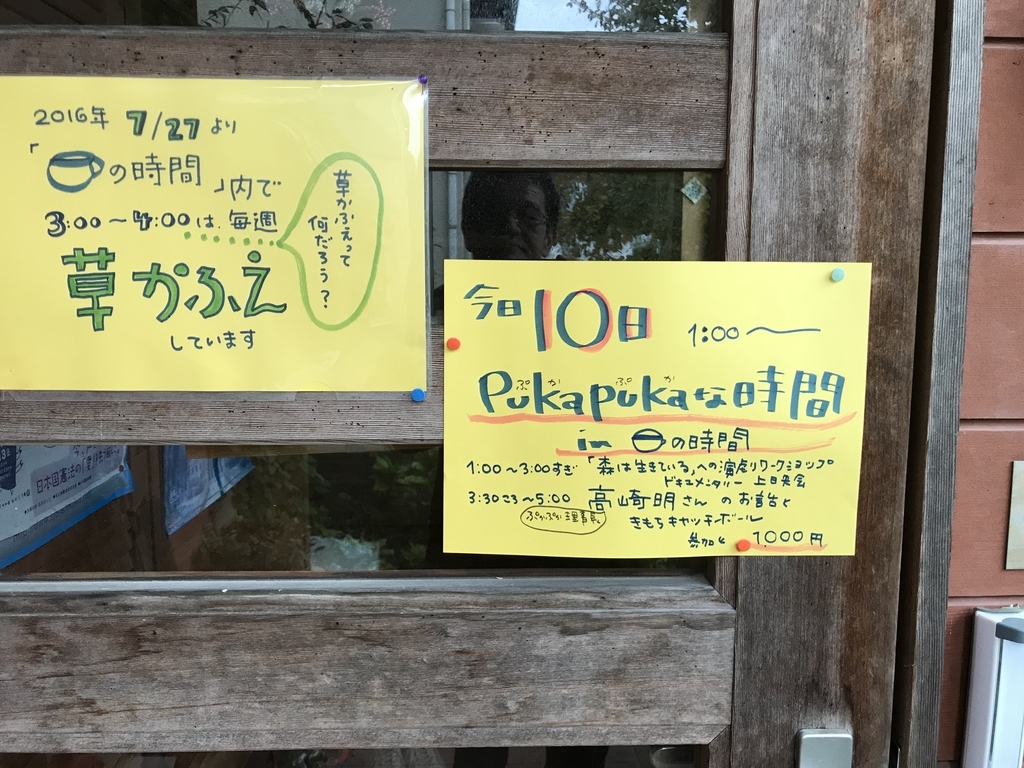 2016年 7/27 より
「の時間」内で
3:00～4:00は、毎週
草かふぇ
しています
草かふぇって
何だろう？
今日10日 1:00～
ぷか ぷか
Pukapukaな時間
in の時間
1:00～3:00すぎ 「森は生きている」への演劇ワークショップ
ドキュメンタリー 上映会
3:30ごろ～5:00 高崎明さん のお話と
ぷかぷか理事長
きもちキャッチボール
参加 1000円
日本国憲法の